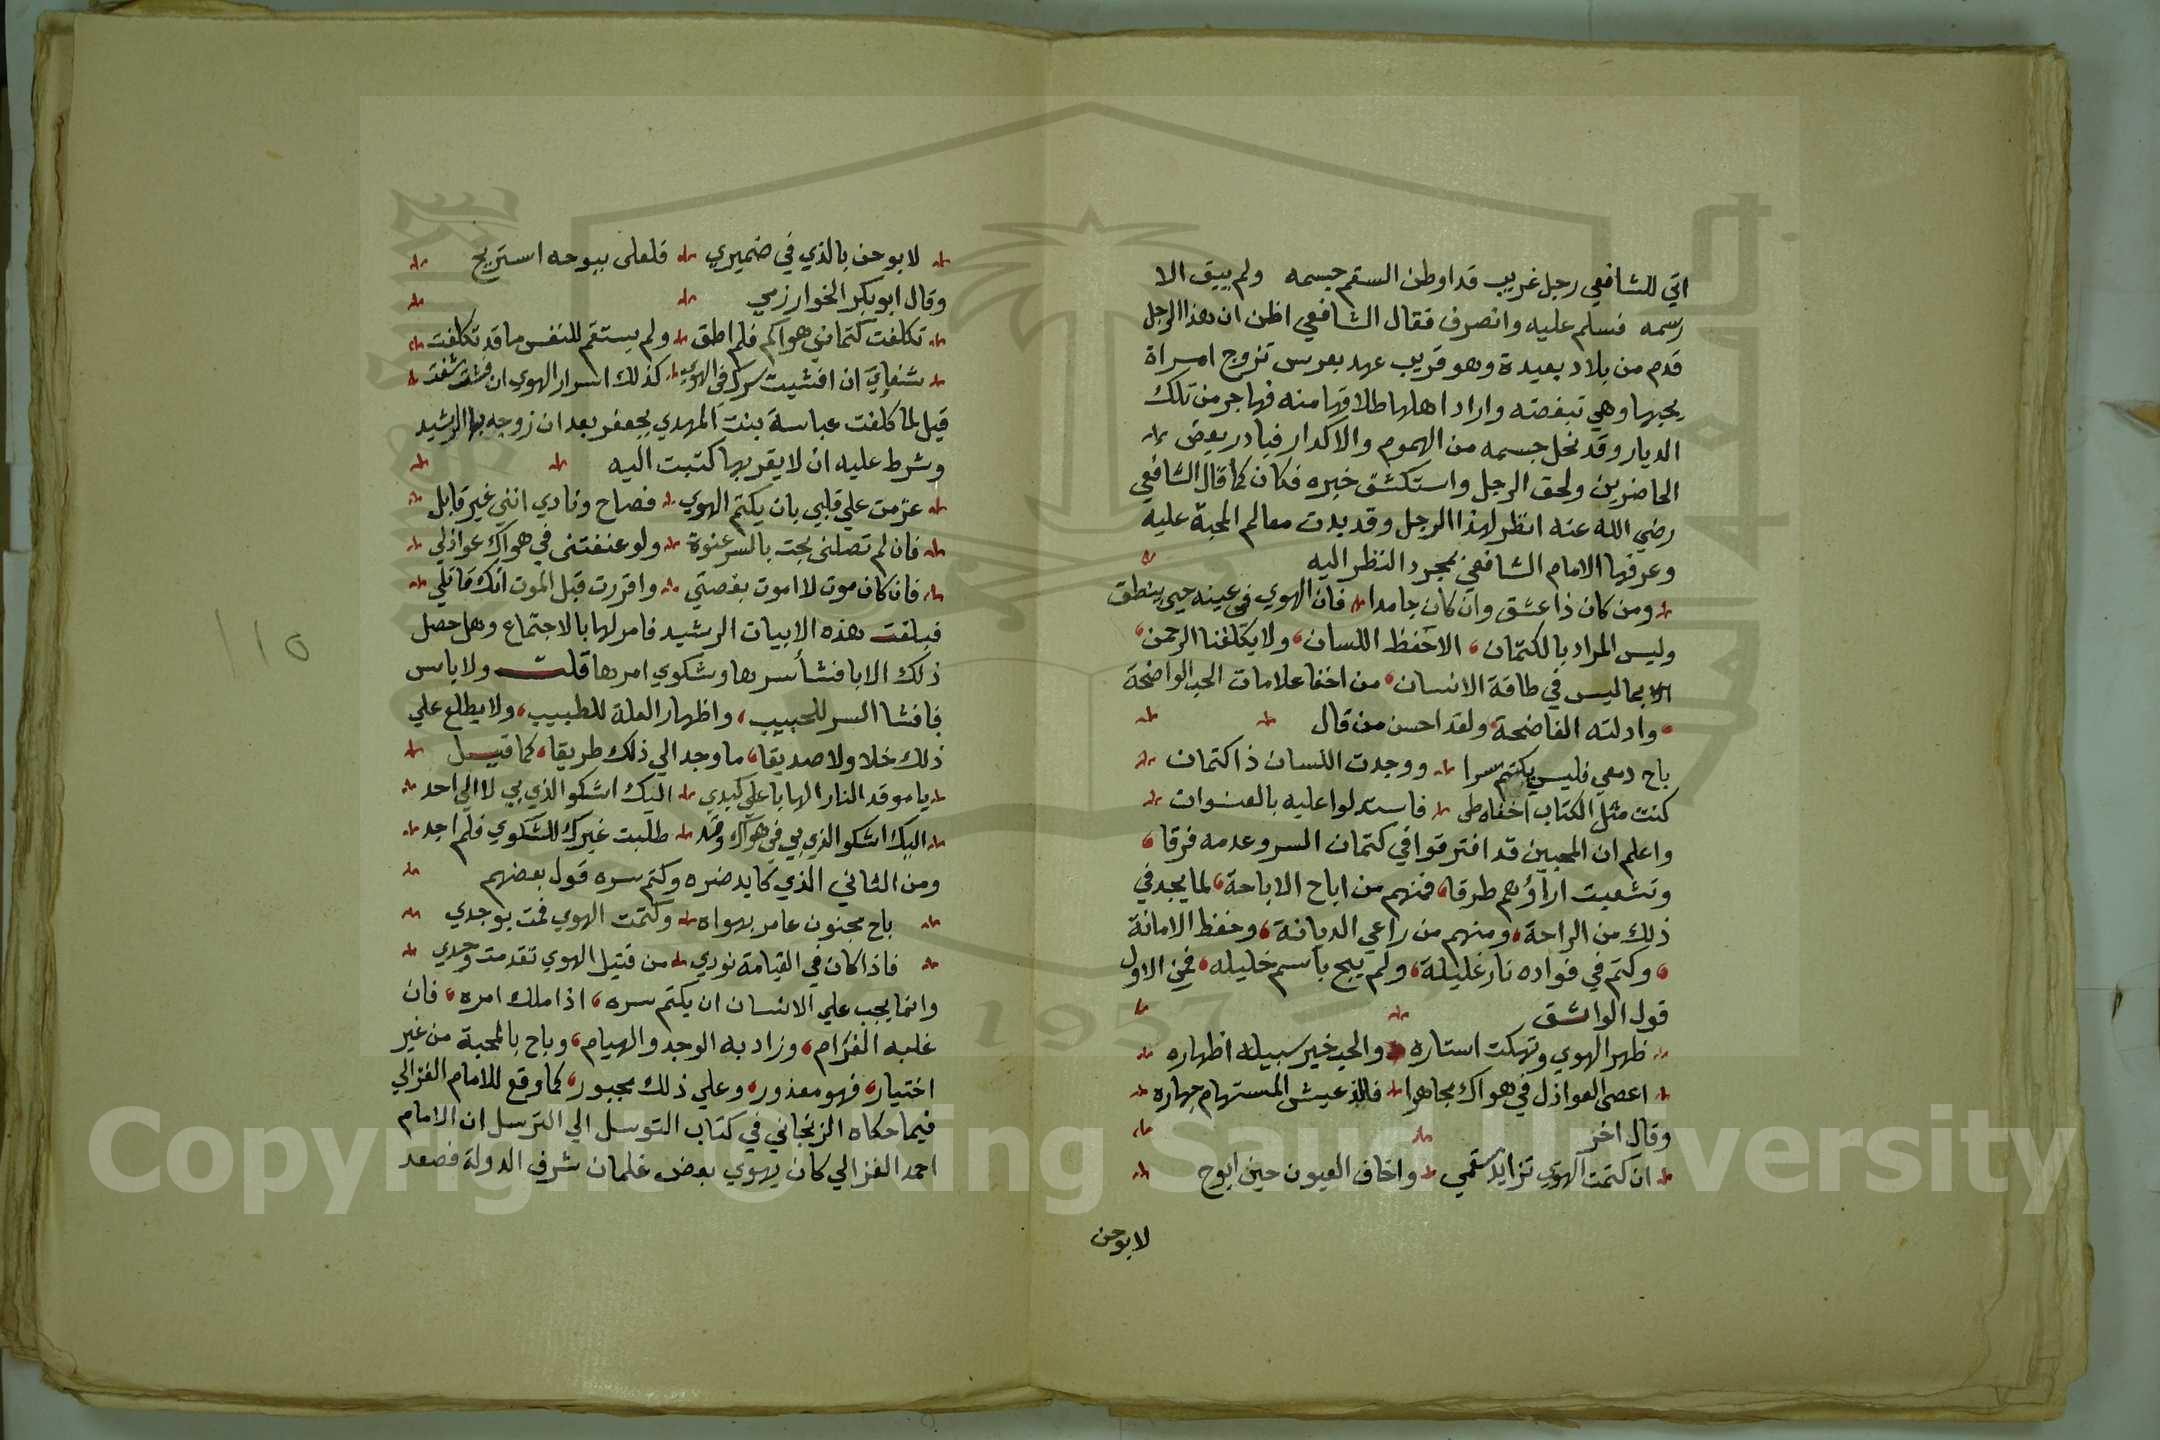 اتي للشافعي رجل غريب قد اوطن السقم جسمه ولم يبق الا
رسمه فسلم عليه وانصرف فقال الشافعي اظن ان هذا الرجل
قدم من بلاد بعيدة وهو قريب عهد بعرس تزوج امراة
يحبها وهي تبغضه واراد اهلها طلاقها منه فهاجر من تلك
الديار وقد نحل جسمه من الهموم والاكدار فبادر بعض
الحاضرين ولحق الرجل واستكشف خبره فكان كما قال الشافعي
رضي الله عنه انظر لهذا الرجل وقد بدت معالم المحبة عليه
وعرفها الامام الشافعي بمجرد النظر اليه
ومن كان ذا عشق وان كان جامدا فان الهوي في عينه حي ينطق
وليس المراد بالكتمان الا حفظ اللسان ولا يكلفنا الرحمن
بما ليس في طاقة الانسان من اخفا علامات الحب الواضحة
وادلته الفاضحة ولقد احسن من قال
باح دمعي فليس يكتم سرا ووجدت اللسان ذا كتمان
كنت مثل الكتاب اخفاه طى فاستدلوا عليه بالعنوان
واعلم ان المحبين قد افترقوا في كتمان السر وعدمه فرقا
وتشعبت اراؤهم طرقا فمنهم من اباح الاباحة لما يجد في
ذلك من الراحة ومنهم من راعي الديانة وحفظ الامانة
وكتم في فواده نار غليله ولم يبح باسم خليله فمن الاول
قول الواثق
ظهر الهوي وتهتكت استاره والحب خير سبيله اظهاره
اعصى العواذل في هواك مجاهرا فالذ عيش المستهام جهاره
وقال اخر
ان كتمت الهوي تزايد سقمي واخاف العيون حين ابوح
لابوحن
لابوحن بالذي في ضميري فلعلى ببوحه استريح
وقال ابو بكر الخوارزمي
تكلفت كتماني هواكم فلم اطق ولم يستقم للنفس ما قد تكلفت
شنعاي ان افشيت سرك في الهوي كذلك اسرار الهوي ان فشت شفت
قيل لما كلفت عباسة بنت المهدي بجعفر بعد ان زوجه بها الرشيد
وشرط عليه ان لا يقربها كتبت اليه
عزمت علي قلبي بان يكتم الهوي فصاح ونادي انني غير قابل
فان لم تصلنى بحت بالسر عنوة ولو عنفتنى في هواك عواذلي
فان كان موت لا اموت بغصتي واقررت قبل الموت انك قاتلي
فبلغت هذه الابيات الرشيد فامر لها بالاجتماع وهل حصل
ذلك الا بافشا سرها وشكوي امرها قلت ولا باس
بافشا السر للحبيب واظهار العلة للطبيب ولا يطلع علي
ذلك خلا ولا صديقا ما وجد الي ذلك طريقا كما قيل
يا موقد النار الهابا علي كبدي اليك اشكو الذي بي لا الي احد
اليك اشكو الذي بي في هواك وقد طلبت غيرك للشكوي فلم اجد
ومن الثاني الذي كابد ضره وكتم سره قول بعضهم
باح مجنون عامر بهواه وكتمت الهوي فمت بوجدي
فاذا كان في القيامة نودي من قتيل الهوي تقدمت وحدي
وانما يجب علي الانسان ان يكتم سره اذا ملك امره فان
غلبه الغرام وزاد به الوجد والهيام وباح بالمحبة من غير
اختيار فهو معذور وعلي ذلك مجبور كما وقع للامام الغزالي
فيما حكاه الزنجاني في كتاب التوسل الي الترسل ان الامام
احمد الغزالي كان يهوي بعض غلمان شرف الدولة فصعد
١١٥
1957
Copyright © King Saud University